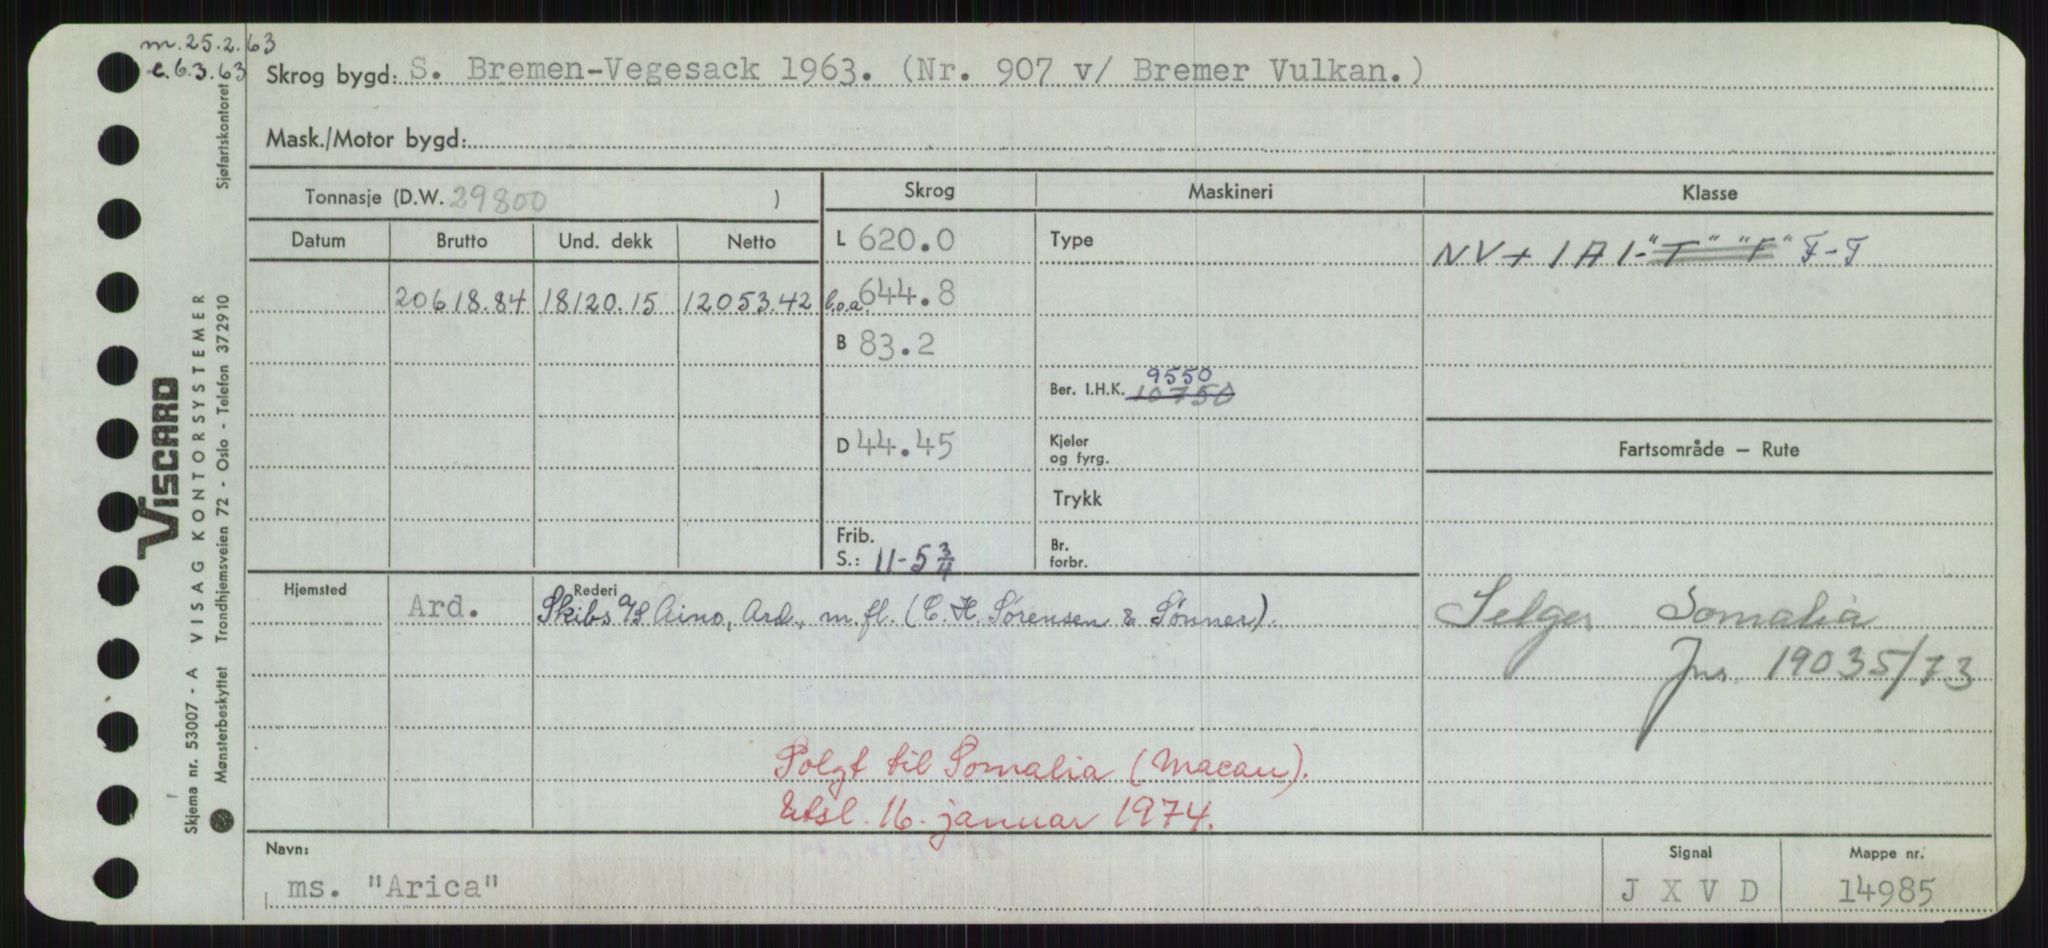 m. 25.2.63
e. 6.3.63
Skrog bygd: S. Bremen-Vegesack 1963. (Nr. 907 v/ Bremer Vulkan.)
Mask./Motor bygd:
Tonnasje (D.W. 29800 )
Skrog
Maskineri
Klasse
Datum
Brutto
Und. dekk
Netto
L 620.0
Type
NV + 1A1- "T" "F" F-T
20618.84 18120.15 12053.42
l.o.a. 644.8
B 83.2
Ber. I.H.K. 10750 9550
D 44.45
Kjeler
og fyrg.
Fartsområde – Rute
Trykk
Frib.
S.: 11-5 3/4
Br.
forbr.
Hjemsted
Ard.
Rederi
Skibs A/S Aino, Ard., m.fl. (C. H. Sørensen & Sønner).
Selges Somalia
Jnr. 19035/73
Solgt til Somalia (Macau).
Utsl. 16. januar 1974.
Navn:
ms. "Arica"
Signal
J X V D
Mappe nr.
14985
Sjøfartskontoret
VISCARD
Skjema nr. 53007 - A VISAG KONTORSYSTEMER
Mønsterbeskyttet Trondhjemsveien 72 - Oslo - Telefon 372910